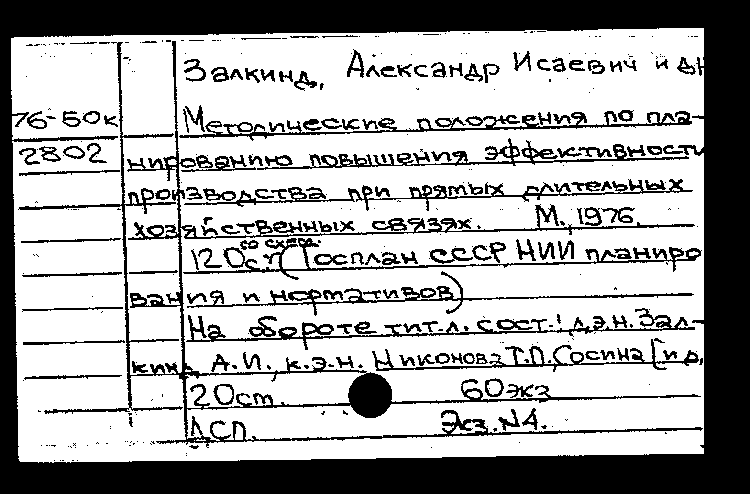 Залкинд, Александр Исаевич и др
76-50к
Методические положения по пла-
2802
нированию повышения эффективности
производства при прямых длительных
хозяйственных связях. М., 1976.
со схем.
120 ст (Госплан СССР НИИ планиро
вания и нормативов)
На обороте тит.л. сост.: д.э.н. Зал-
кинд А.И., к.э.н. Никонова Т.П., Сосина [и др.
20 ст. 60 экз
ДСП. Экз. №4.